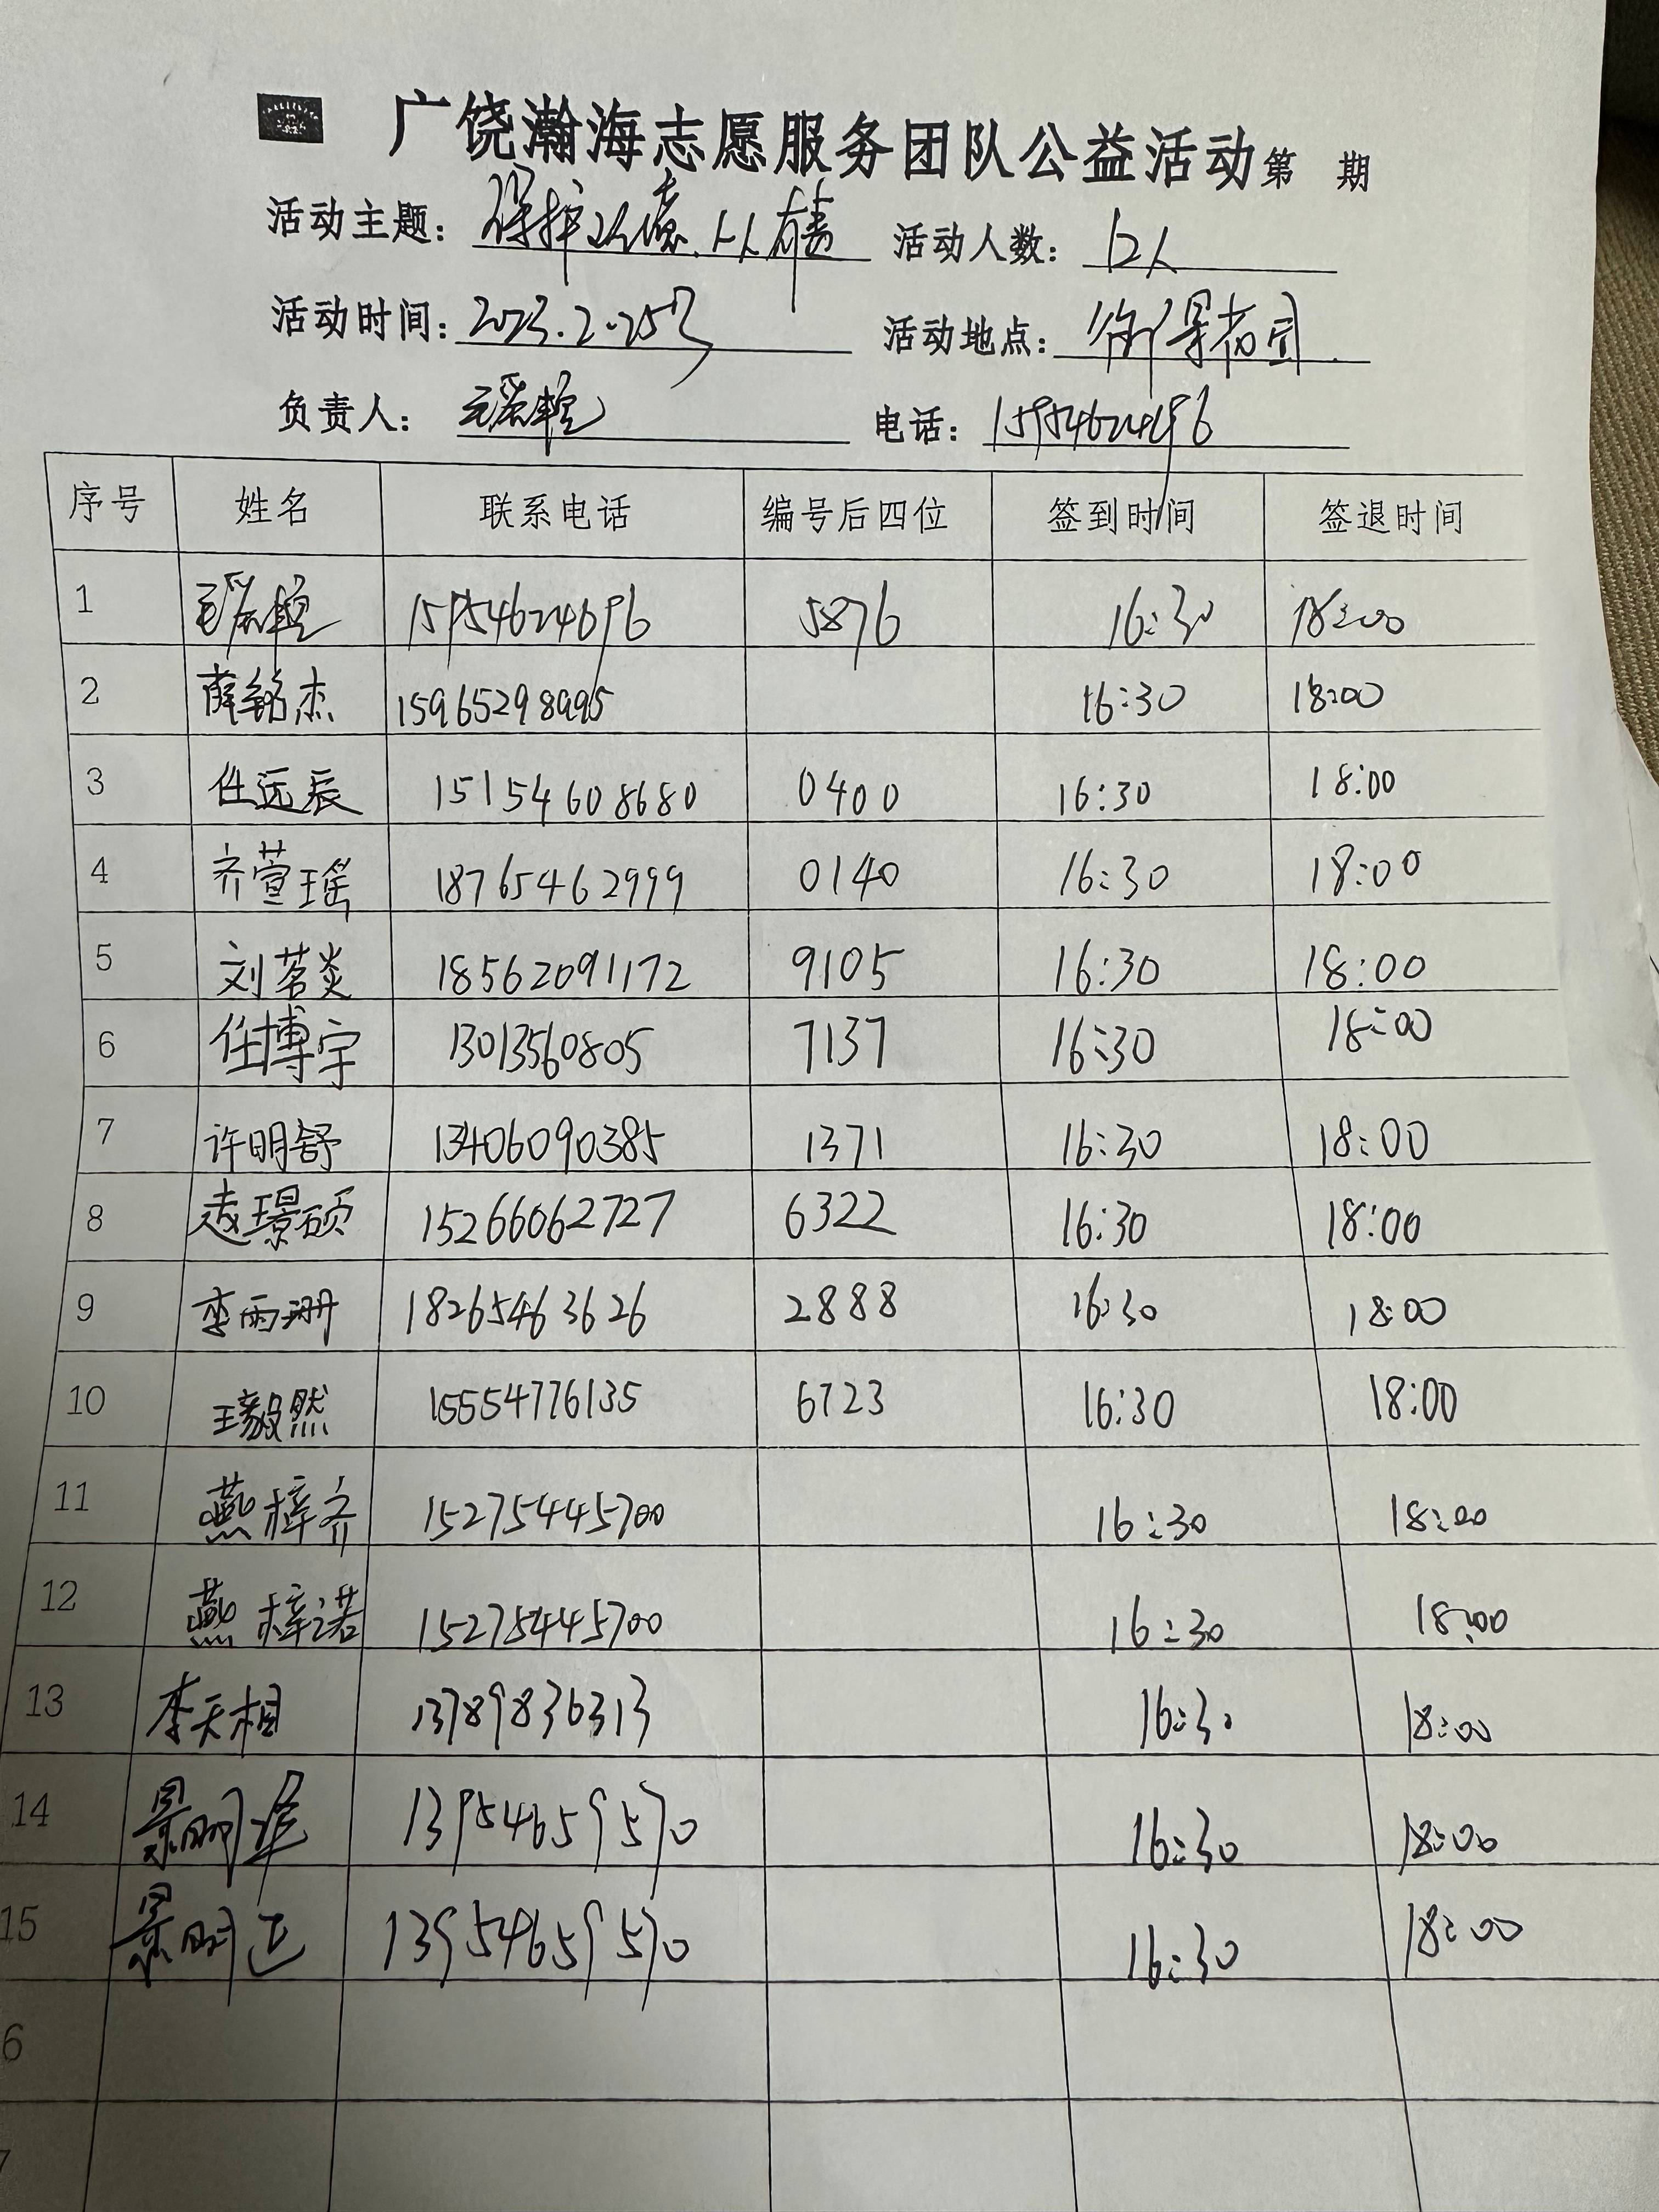 广饶瀚海志愿服务团队公益活动第 期
活动主题：保护 人人有责 活动人数：12人
活动时间：2023.2.25日 活动地点：
负责人： 电话：15954624696
序号 姓名 联系电话 编号后四位 签到时间 签退时间
1 15954624696 5876 16:30 18:00
2 薛铭杰 15965298995 16:30 18:00
3 任远辰 15154608680 0400 16:30 18:00
4 齐萱瑶 18765462999 0140 16:30 18:00
5 刘茗炎 18562091172 9105 16:30 18:00
6 任博宇 13013560805 7137 16:30 18:00
7 许明舒 13406090385 1371 16:30 18:00
8 赵璟硕 15266062727 6322 16:30 18:00
9 李雨珊 18265463626 2888 16:30 18:00
10 王毅然 15554776135 6723 16:30 18:00
11 燕梓齐 15275445700 16:30 18:00
12 燕梓诺 15275445700 16:30 18:00
13 李天相 13789836313 16:30 18:00
14 景明 13954659570 16:30 18:00
15 景明正 13954659570 16:30 18:00
6
7